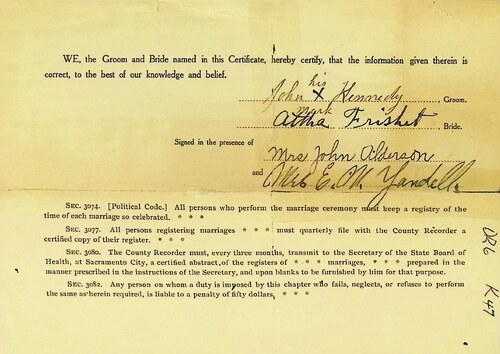 WE, the Groom and Bride named in this Certificate, hereby certify, that the information given therein is
correct, to the best of our knowledge and belief.
his
John X Kennedy, Groom.
mark
Altha Frisket, Bride.
Signed in the presence of
Mrs John Alderson
and Mrs E. W. Yandell.
SEC. 3074. [Political Code.] All persons who perform the marriage ceremony must keep a registry of the
time of each marriage so celebrated. * * *
SEC. 3077. All persons registering marriages * * * must quarterly file with the County Recorder a
certified copy of their register. * * *
SEC. 3080. The County Recorder must, every three months, transmit to the Secretary of the State Board of
Health, at Sacramento City, a certified abstract of the registers of * * * marriages, * * * prepared in the
manner prescribed in the instructions of the Secretary, and upon blanks to be furnished by him for that purpose.
SEC. 3082. Any person on whom a duty is imposed by this chapter who fails, neglects, or refuses to perform
the same as herein required, is liable to a penalty of fifty dollars, * * *
K47